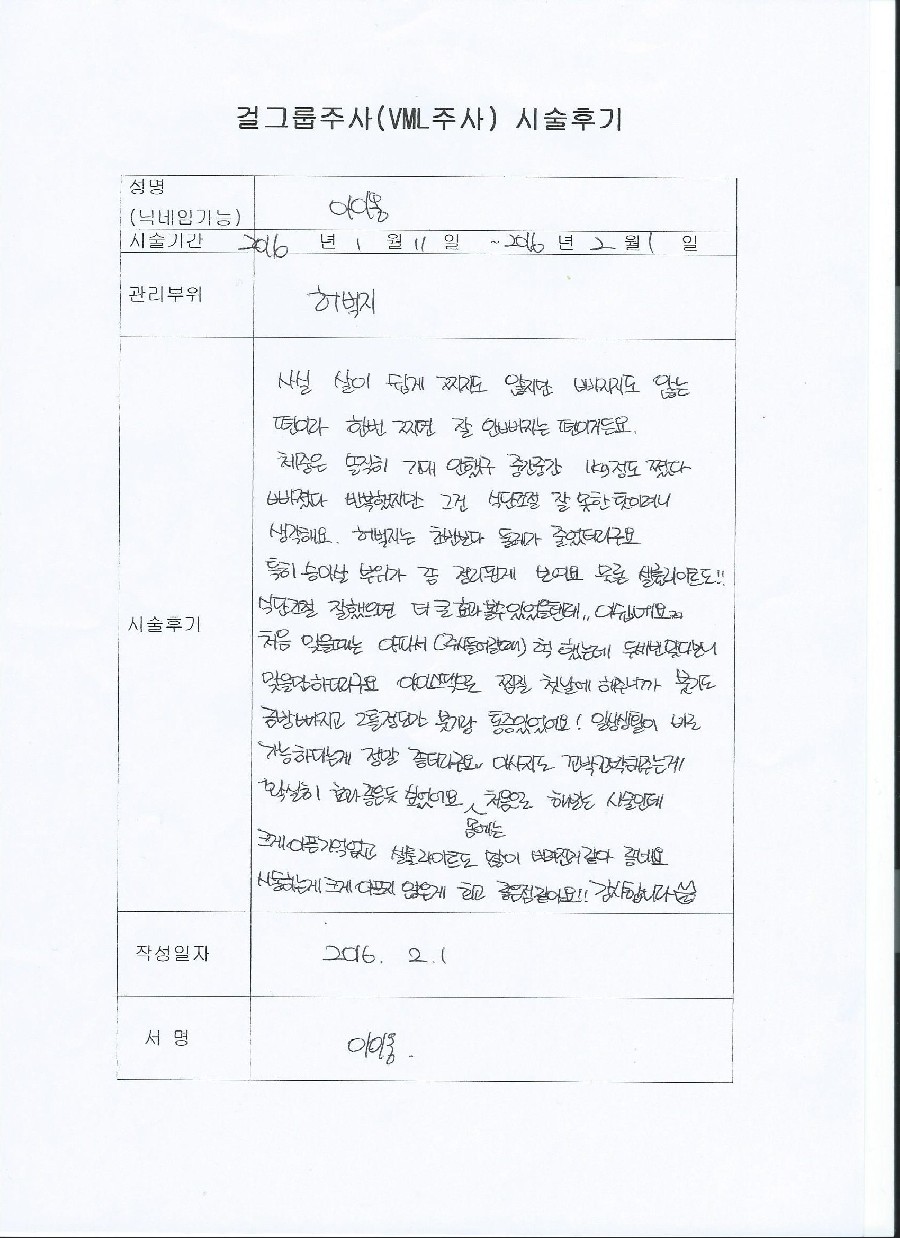 걸그룹주사(VML주사) 시술후기
성명
(닉네임가능)
이이용
시술기간 2016 년 1 월 11 일 ~ 2016 년 2 월 1 일
관리부위 허벅지
시술후기
사실 살이 쉽게 찌지도 않지만 빠지지도 않는
편이라 한번 찌면 잘 안빠지는 편이거든요.
체중은 솔직히 기대 안했구 중간중간 1kg정도 쪘다
빠졌다 반복했지만 그건 식단조절 잘 못한 탓이려니
생각해요. 허벅지는 초반보다 둘레가 줄었더라구요
특히 승마살 부위가 좀 정리된게 보여요 물론 셀룰라이트도!!
식단조절 잘했으면 더 큰 효과 볼수있었을텐데,, 아쉽네요ㅠㅠ
처음 맞을때는 아파서 (주사들어갈때) 헉 했는데 두세번 맞다보니
맞을만 하더라구요 아이스팩으로 찜질 첫날에 해주니까 붓기도
금방 빠지고 2틀정도만 붓기랑 통증있었어요! 일상생활이 바로
가능하다는게 정말 좋더라구요 마사지도 꼬박꼬박해주는게
확실히 효과 좋은듯 보였어요 처음으로 해보는 시술인데
몸에는
크게 아픈기억없고 셀룰라이트도 많이 빠진거같아 좋네요
시술하는게 크게 아프지 않은게 최고 좋은점같아요!! 감사합니다^^
작성일자 2016. 2. 1
서 명 이이용.